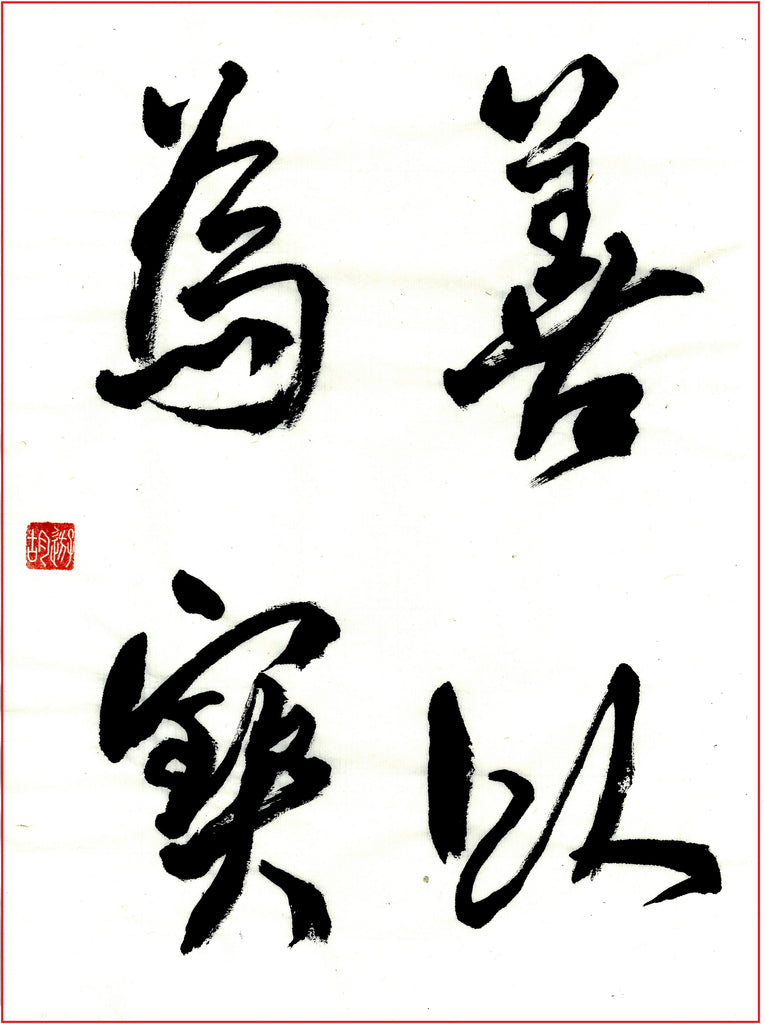 善以
為寶